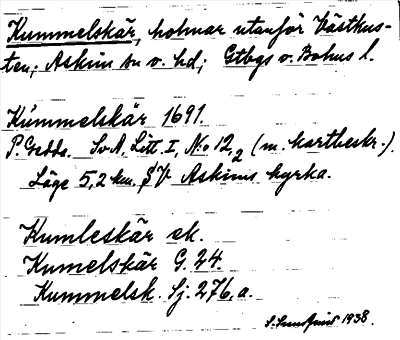 Kummelskär, holmar utanför Västkus-
ten; Askim sn v. hd; Gtbgs o. Bohus l.
Kummelskär 1691.
P. Gedda. Sv A. Litt. I, N:o 12,2 (m. kartbeskr.).
Läge 5,2 km. SV Askims kyrka.
Kumleskär ek.
Kumelskär G. 24.
Kummelsk. Sj. 276,a.
S. Sundquist 1938.